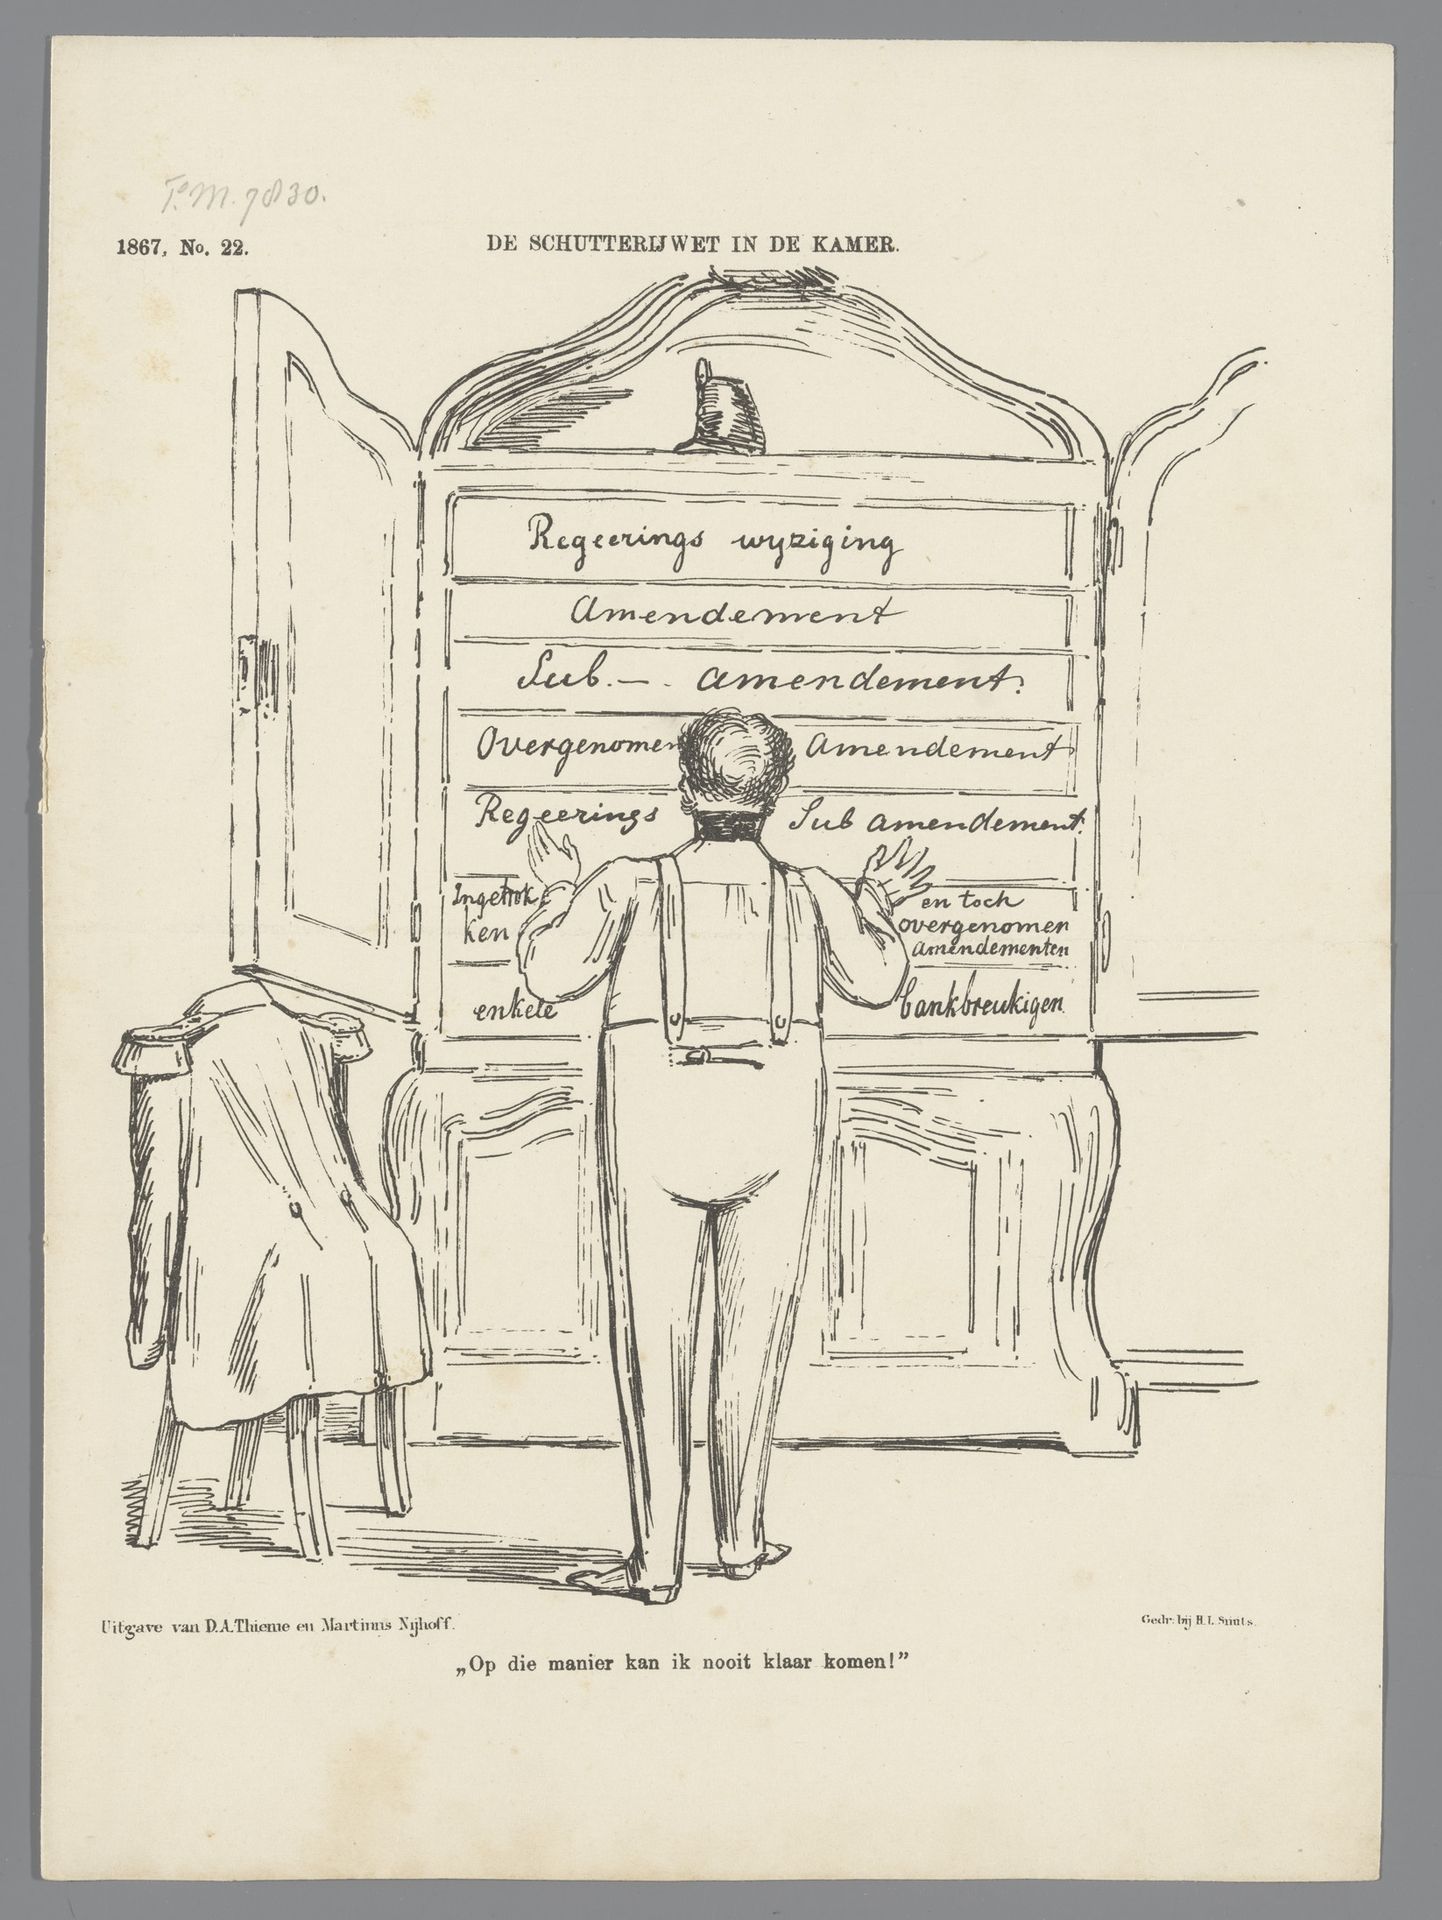 F.M. 7830.
1867, No. 22.
DE SCHUTTERIJWET IN DE KAMER.
Regeerings wyziging
Amendement
Sub. — . amendement.
Overgenomen Amendement
Regeerings Sub amendement.
Ingetrok
ken
en toch
overgenomen
amendementen
enkele bankbreukigen
Uitgave van D.A.Thieme en Martinus Nijhoff.
Gedr: bij H.L. Smits.
„Op die manier kan ik nooit klaar komen!”